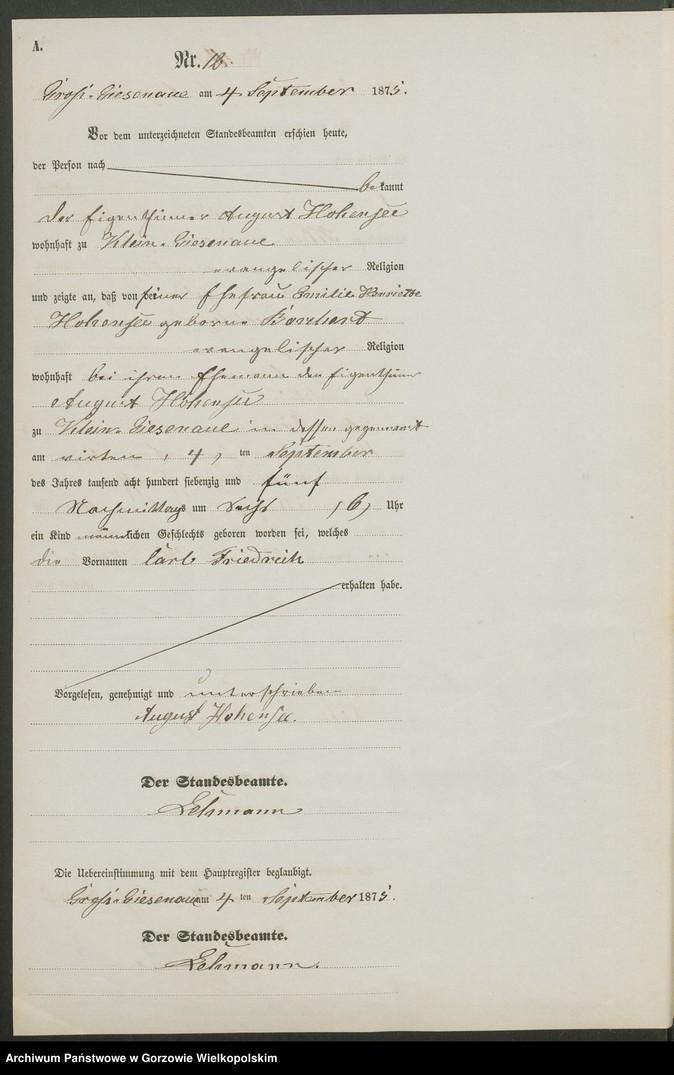 A.
Nr. 12.
Gross-Giesenaue am 4 September 1875.
Vor dem unterzeichneten Standesbeamten erschien heute,
der Person nach
bekannt
der Eigenthümer August Hohensee
wohnhaft zu Klein-Giesenaue
evangelischer Religion
und zeigte an, daß von seiner Ehefrau Emilie Henriette
Hohensee geborne
evangelischer Religion
wohnhaft bei ihrem Ehemann den Eigenthümer
August Hohensee
zu Klein-Giesenaue in dessen gegenwart
am virten, (4) ten September
des Jahres tausend acht hundert siebenzig und fünf
Nachmittags um Sechs (6) Uhr
ein Kind männlichen Geschlechts geboren worden sei, welches
die Vornamen Carl Friedrich
erhalten habe.
Vorgelesen, genehmigt und unterschrieben
August Hohensee.
Der Standesbeamte.
Lehmann
Die Uebereinstimmung mit dem Hauptregister beglaubigt.
Gross-Giesenaue am 4 ten September 1875.
Der Standesbeamte.
Lehmann.
Archiwum Państwowe w Gorzowie Wielkopolskim